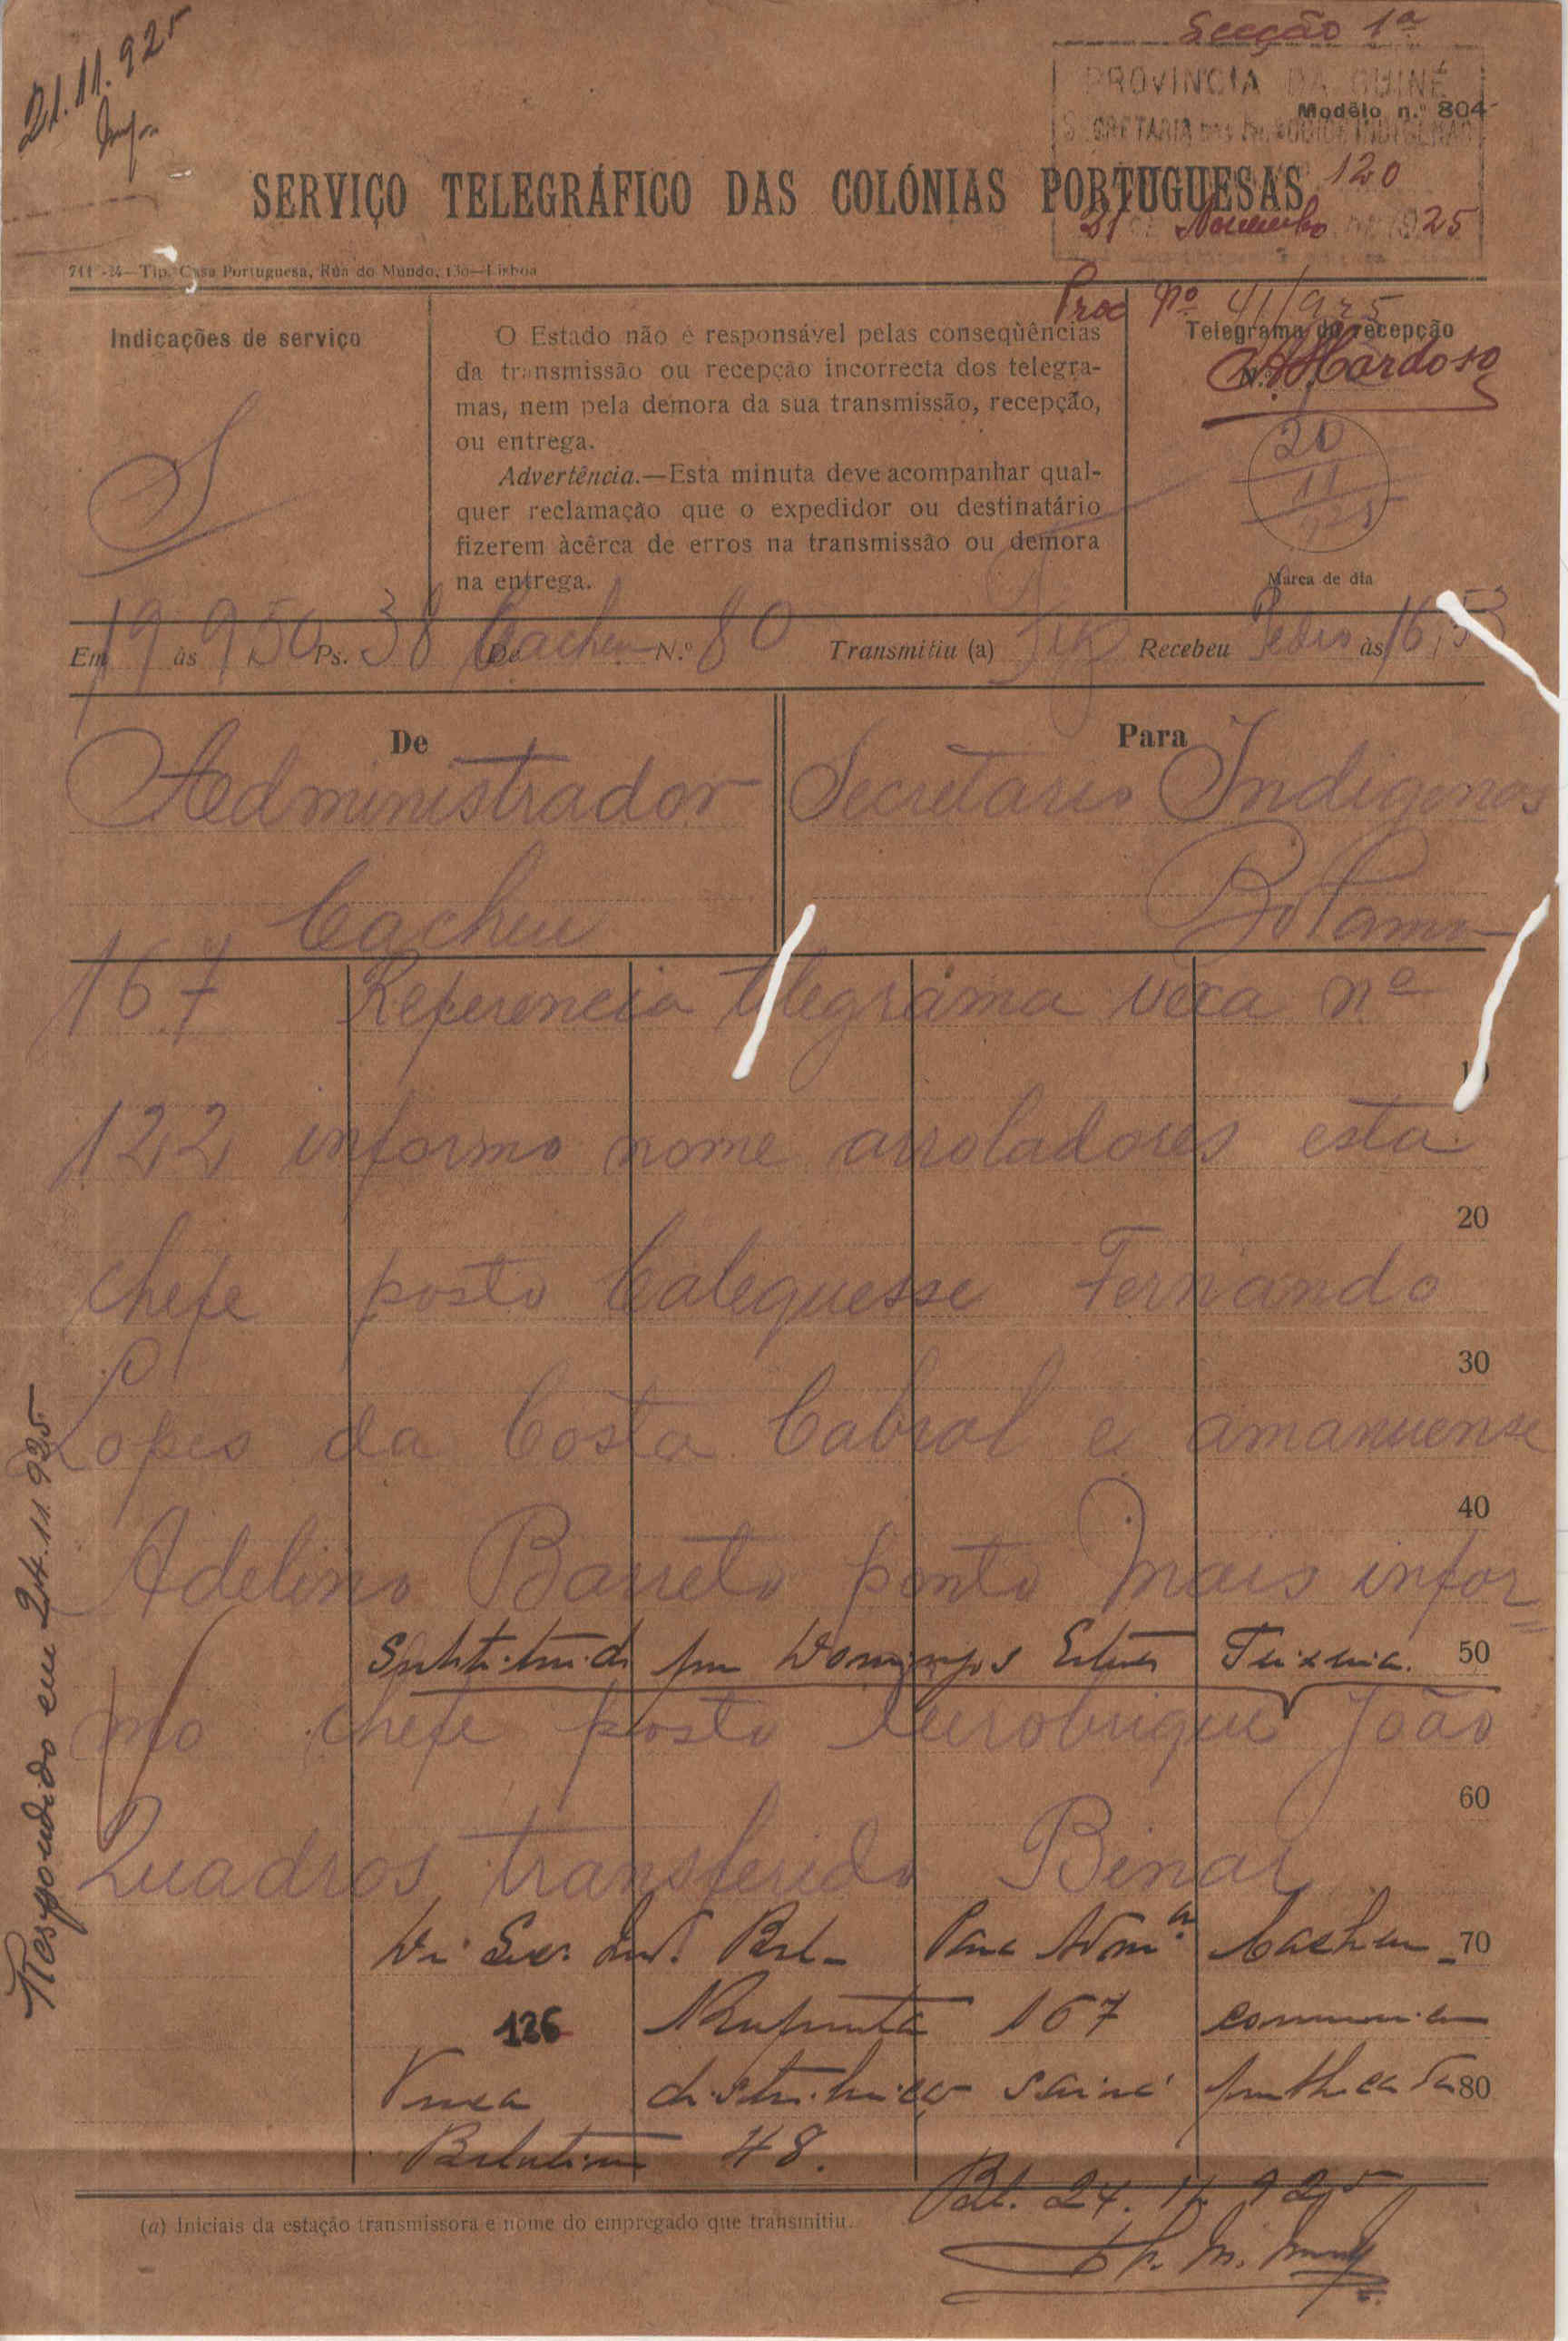 21.11.925
Secção 1ª
PROVINCIA DA GUINÉ
Modêlo n.º 804
SECRETARIA DOS NEGOCIOS INDIGENAS
120
SERVIÇO TELEGRÁFICO DAS COLÓNIAS PORTUGUESAS
21 DE Novembro DE 1925
Tip. Casa Portuguesa, Rua do Mundo, 130—Lisboa
Proc Nº 41/925
Indicações de serviço
O Estado não é responsável pelas conseqüências
da transmissão ou recepção incorrecta dos telegra-
mas, nem pela demora da sua transmissão, recepção,
ou entrega.
Advertência.—Esta minuta deve acompanhar qual-
quer reclamação que o expedidor ou destinatário
fizerem àcêrca de erros na transmissão ou demora
na entrega.
Telegrama de recepção
N.º
Cardoso
20
11
925
Marca de dia
Em 19 às 950 Ps. 38 De Cacheu N.º 80 Transmitiu (a) Recebeu Pedro às 16,53
De
Para
Administrador
Secretario Indigenas
Cacheu
Bolama
167 Referencia telegrama vexa nº
10
122 informo nome arroladores esta
20
chefe posto Calequesse Fernando
30
Lopes da Costa Cabral e amanuense
40
Adelino Barreto ponto Mais infor
Substituido por Domingos Teixeira.
50
mo chefe posto João
60
Quadros transferido Binar
De Sec. Ind. Bol- Para Admº Cacheu
70
126 Resposta 167
Vexa distribuição sairá
80
Boletim 48.
Bol. 24.11.925
(a) Iniciais da estação transmissora e nome do empregado que transmitiu.
Respondido em 24.11.925